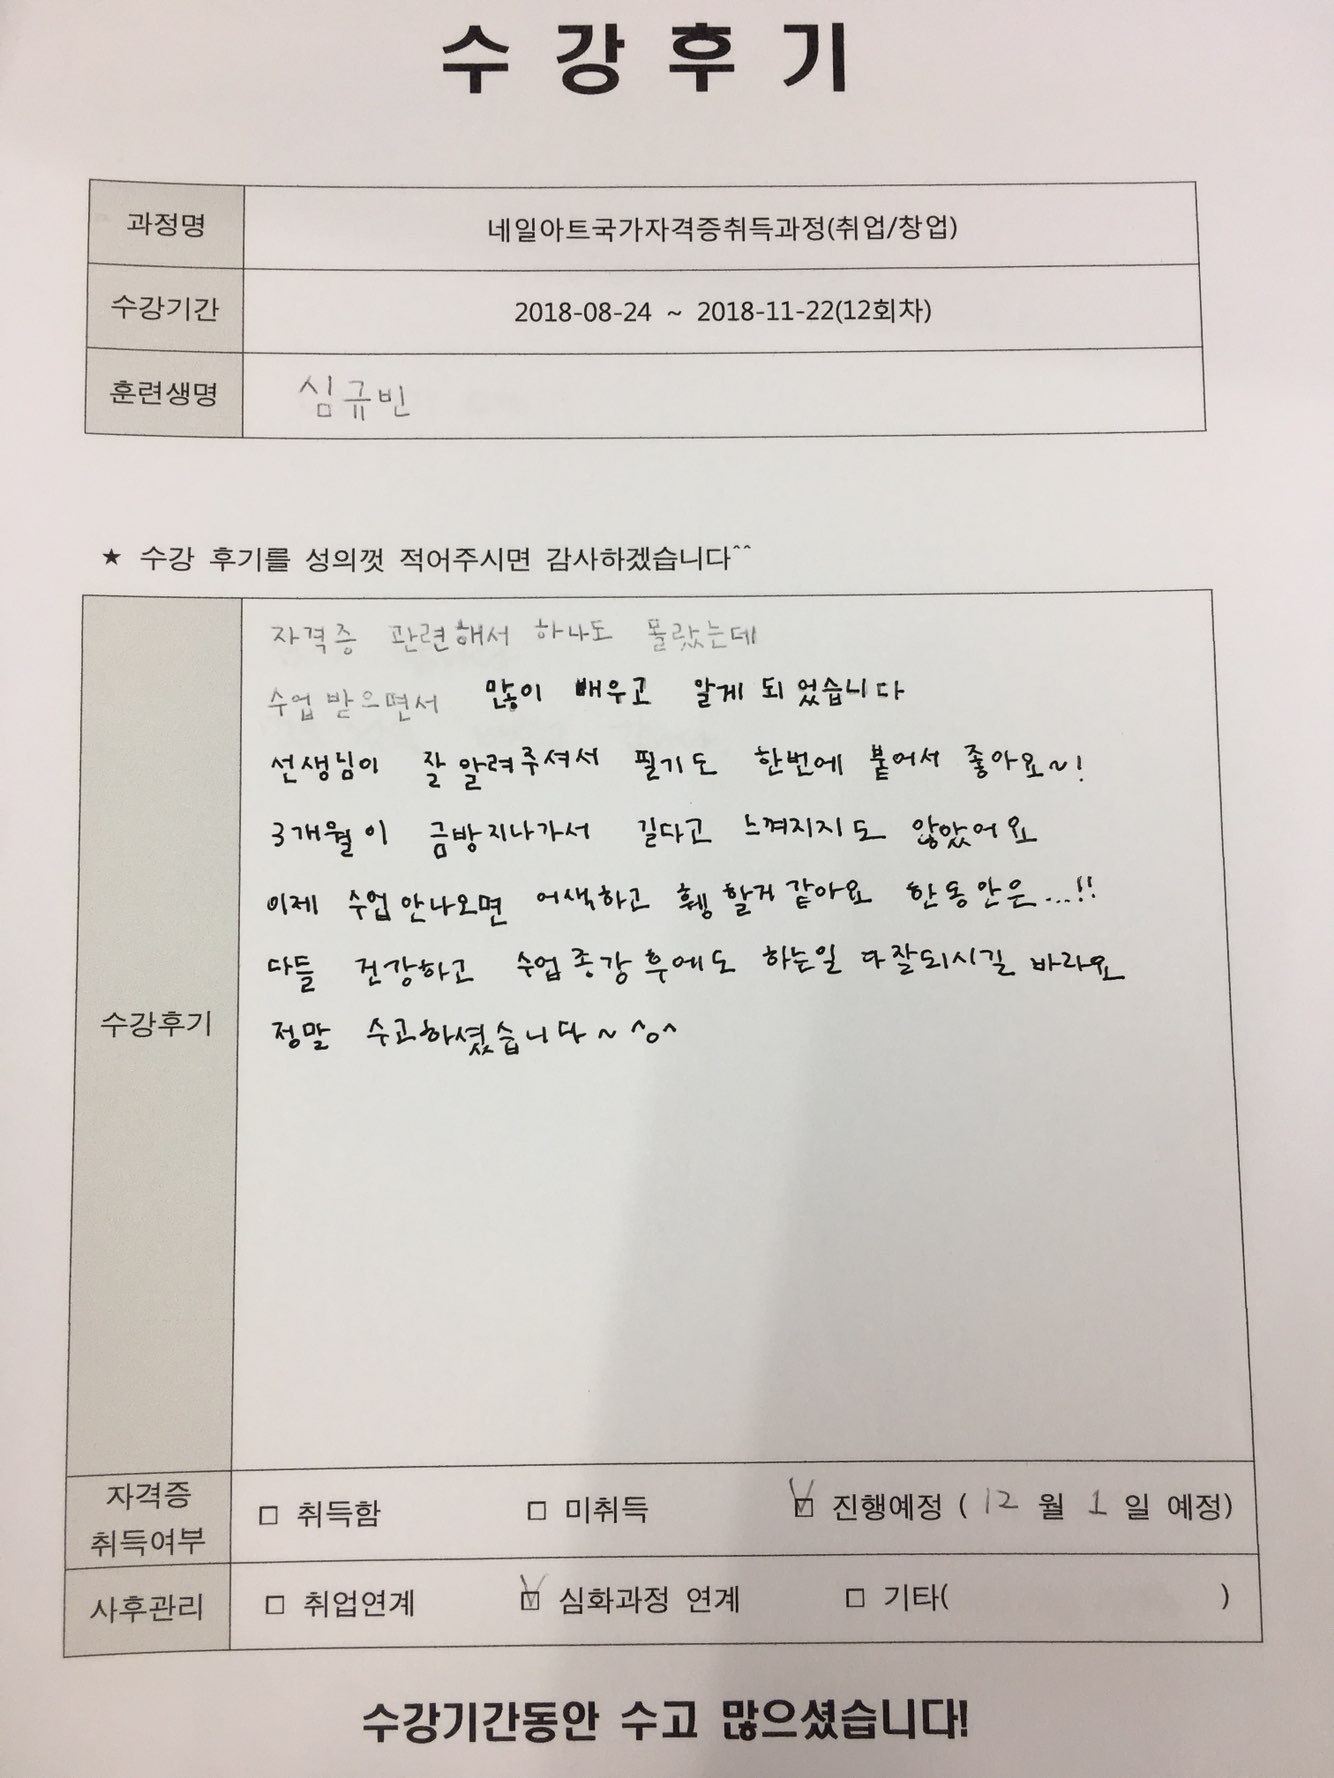 수강후기
과정명 네일아트국가자격증취득과정(취업/창업)
수강기간 2018-08-24 ~ 2018-11-22(12회차)
훈련생명 심규빈
★ 수강 후기를 성의껏 적어주시면 감사하겠습니다^^
자격증 관련해서 하나도 몰랐는데
수업 받으면서 많이 배우고 알게 되었습니다
선생님이 잘 알려주셔서 필기도 한번에 붙어서 좋아요~!
3개월이 금방지나가서 길다고 느껴지지도 않았어요
이제 수업안나오면 어색하고 휑 할거 같아요 한동안은...!!
다들 건강하고 수업종강 후에도 하는일 다잘되시길 바라요
수강후기
정말 수고하셨습니다~ ^o^
자격증
취득여부
□ 취득함 □ 미취득 ☑ 진행예정 ( 12 월 1 일 예정)
사후관리 □ 취업연계 ☑ 심화과정 연계 □ 기타( )
수강기간동안 수고 많으셨습니다!